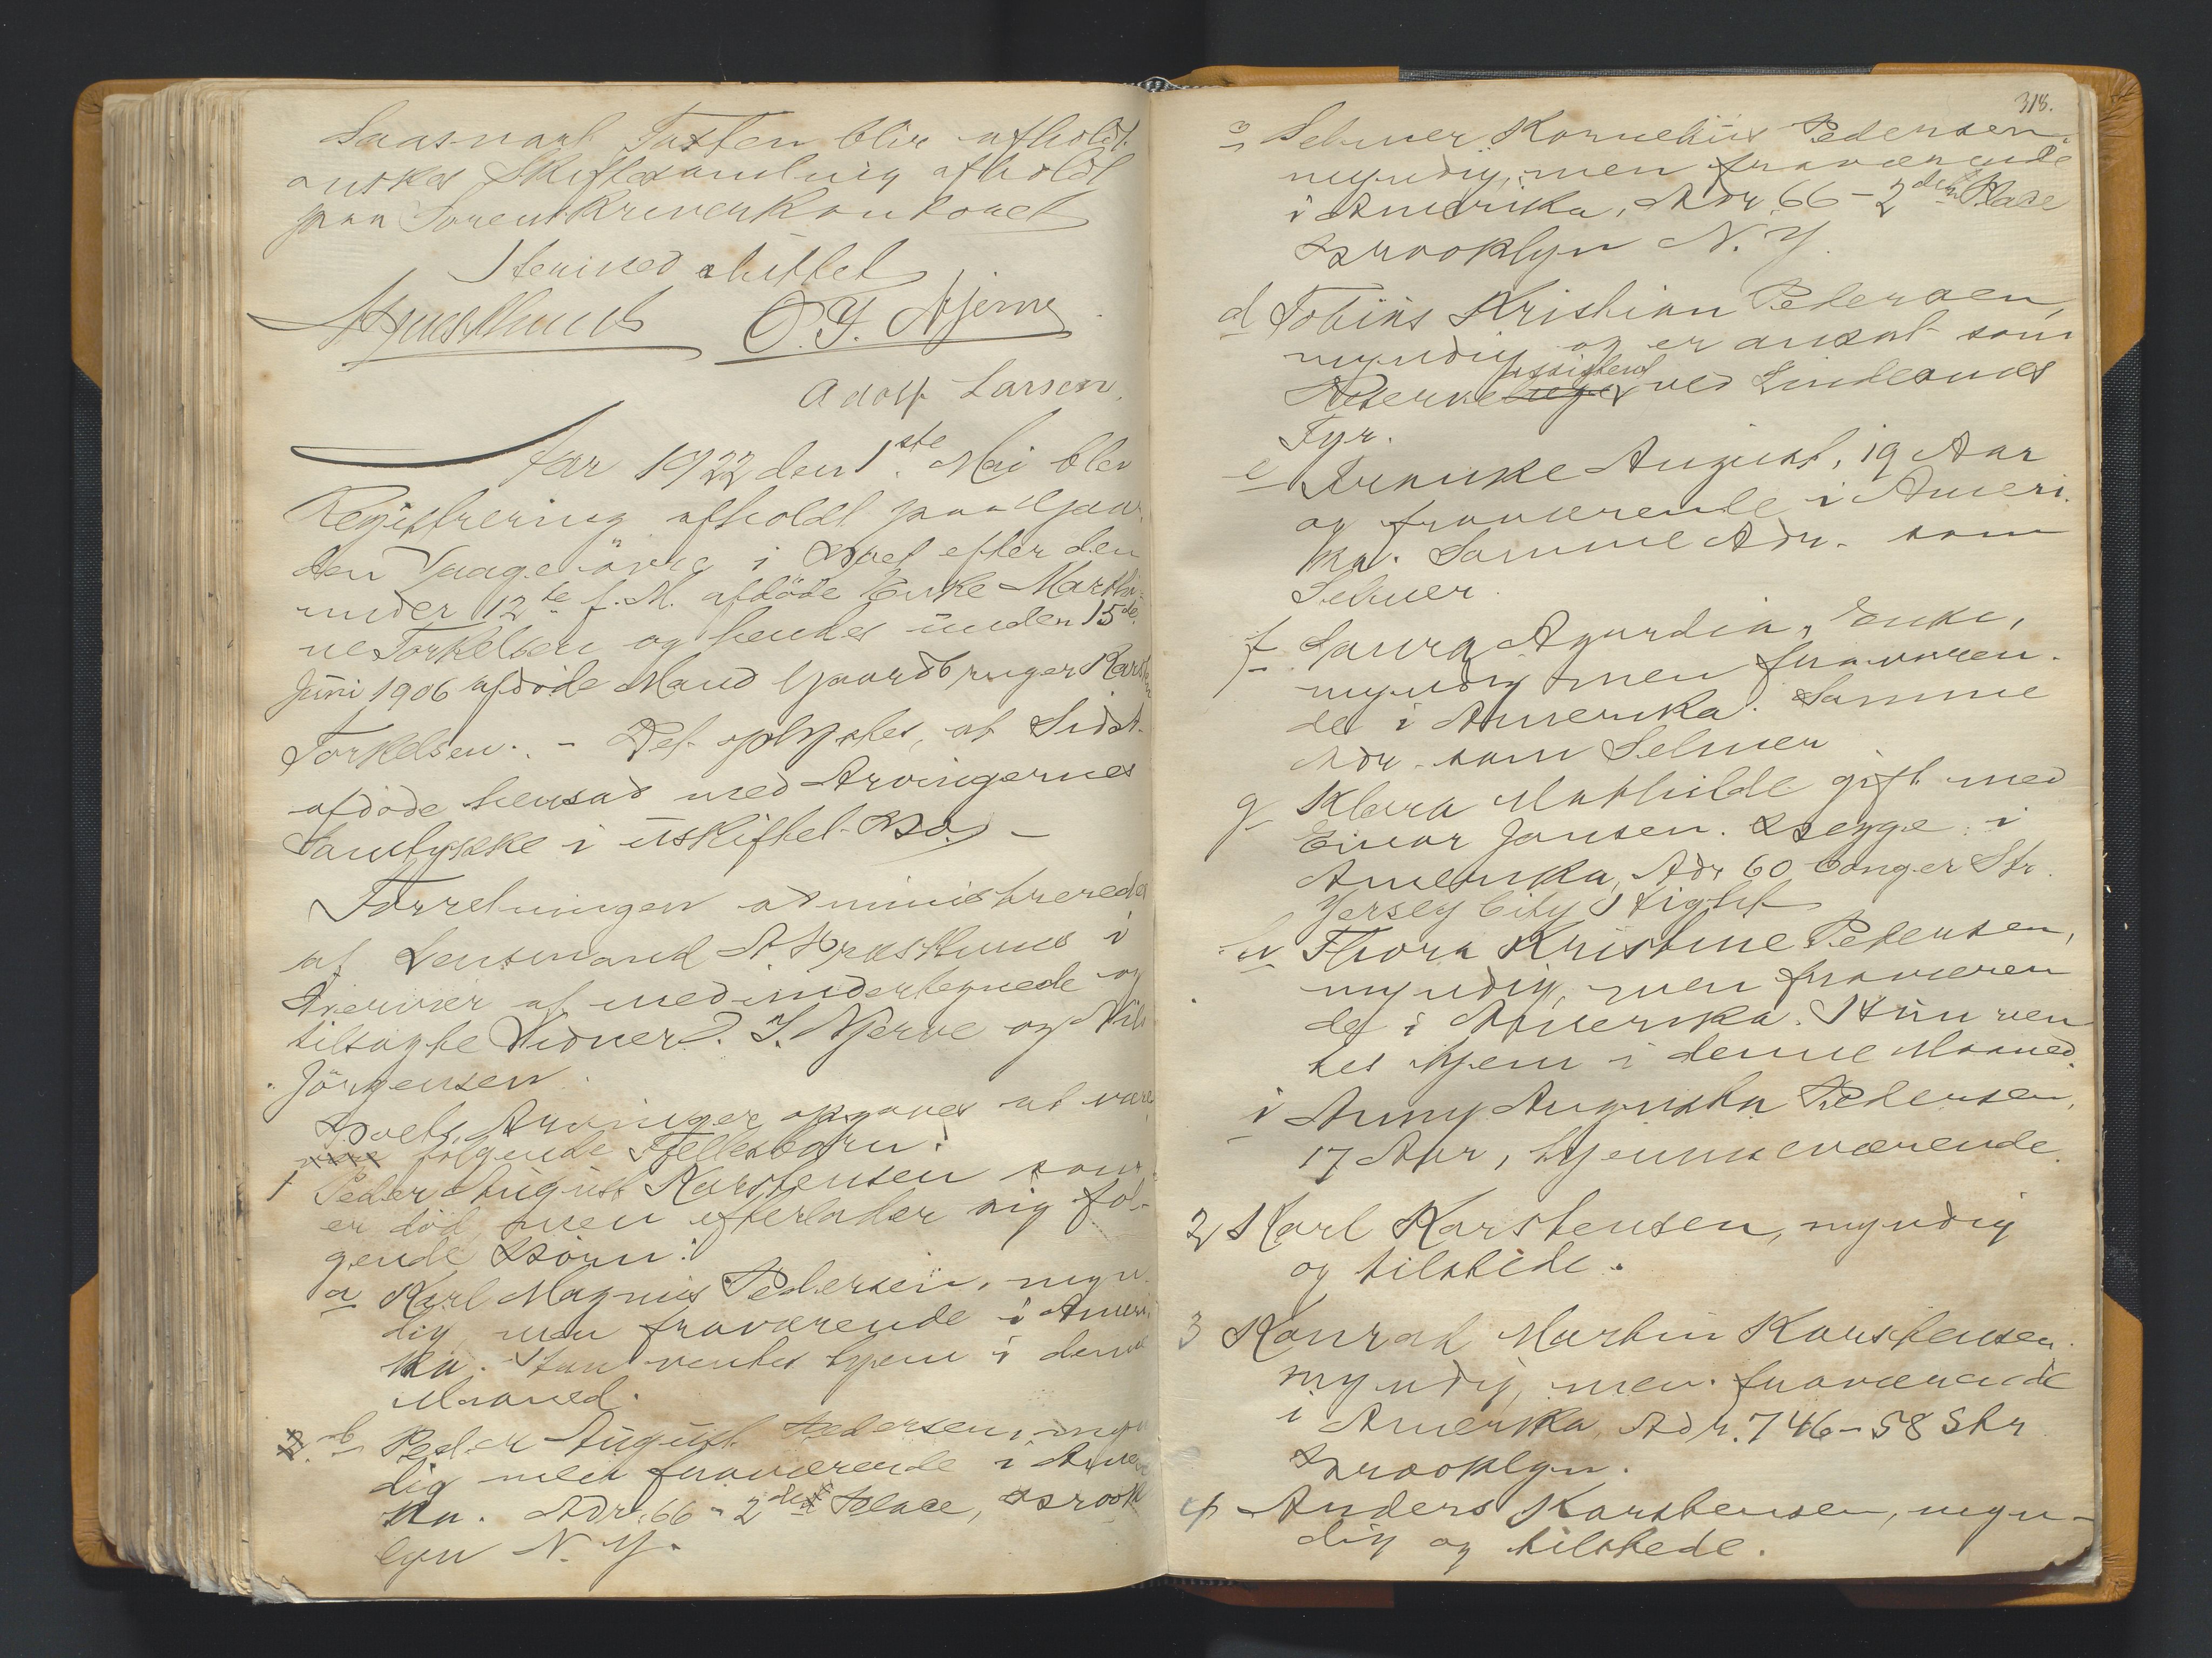 Saasnart Taxten blir afholdt
ønskes Skiftesamling afholdt
paa Sorenskriverkontoret
Hermed sluttet
O. I. Njerve
Adolf Larsen.
Aar 1922 den 1ste Mai blev
Registrering afholdt paa Gaar-
den Vaage övre i Boet efter den
under 12te f. M. afdöde Enke Marthi-
ne Torkelsen og hendes under 15de
Juni 1906 afdöde Mand Gaardbruger Karsten
Torkelsen. - Det oplystes, at Sidst-
afdöde hensad med Arvingernes
Samtykke i uskiftet Bo. -
Forretningen administreredes
af Lensmand A Høaas Munch i
Overvær af medundertegnede og
tilsagte Vidner O. I. Njerve og Nils
Jörgensen.
Boets Arvinger opgaves at være
være følgende Fællesbørn:
1 Peder August Karstensen som
er död, men efterlader sig föl-
gende Börn:
a Karl Magnus Pedersen, myn-
dig, men fraværende i Ameri
ka. Han ventes hjem i denne
Maaned.
2. b Peder August Pedersen, myn
dig men fraværende i Ameri
ka. Adr. 66 - 2den Place, Brook
lyn N. Y.
318.
c Selmer Kornelius Pedersen,
myndig, men fraværende
i Amerika, Adr 66 - 2den Place
Brooklyn N. Y.
d Tobias Kristian Pedersen,
myndig og er ansat som
assistent
Reserve ved Lindesnes
Fyr.
e August, 19 Aar
og fraværende i Ameri-
ka. Samme Adr. som
Selmer.
f Laura Agurdia, Enke,
myndig men fraværen-
de i Amerika. Samme
Adr. som Selmer
g Klara Mathilde gift med
Einar Jansen. Begge i
Amerika, Adr 60 Conger Str.
Jersey City Hight
h Thora Kristine Pedersen,
myndig, men fraværen
de i Amerika. Hun ven
tes hjem i denne Maaned.
i Anny Augusta Pedersen,
17 Aar, hjemmeværende.
2 Karl Karstensen, myndig
og tilstede.
3 Konrad Martin Karstensen.
myndig, men fraværende
i Amerika, Adr. 746 - 58 Str
Brooklyn.
4 Anders Karstensen, myn-
dig og tilstede.